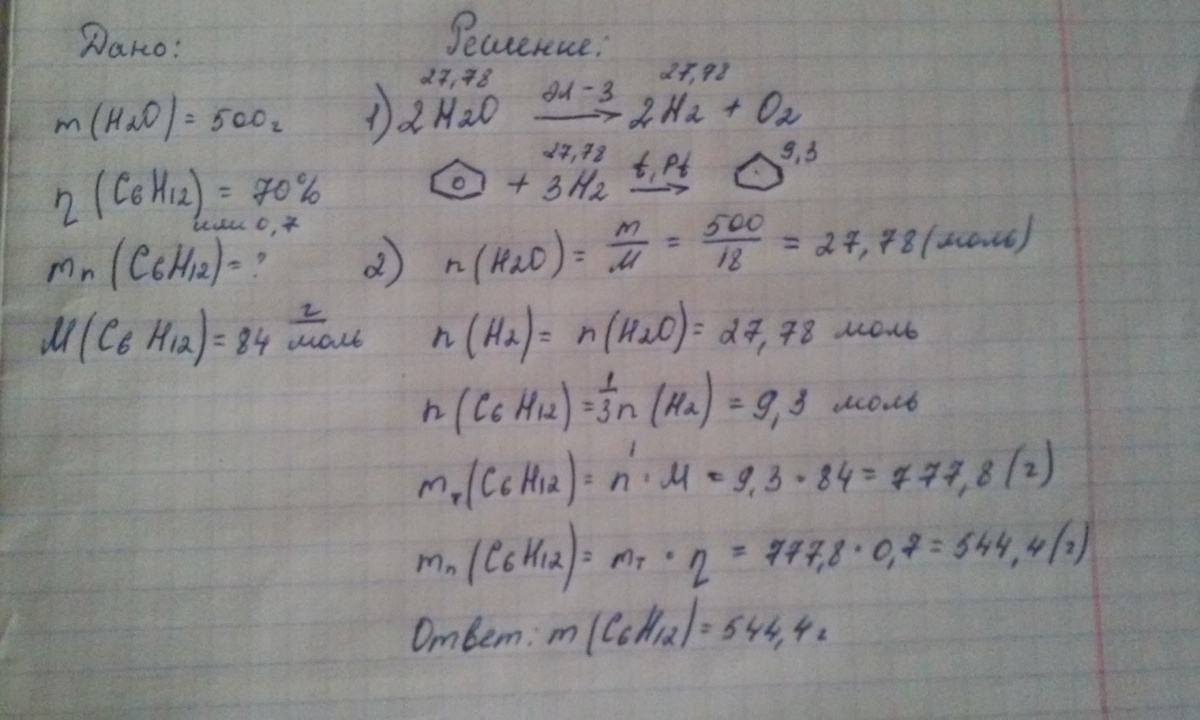 Дано:
m(H2O) = 500г
η (C6H12) = 70%
или 0,7
mп (C6H12) = ?
M(C6H12) = 84 г/моль
Решение:
27,78 27,78
1) 2H2O эл-з → 2H2 + O2
27,78 9,3
+ 3H2 t, Pt →
2) n(H2O) = m/M = 500/18 = 27,78 (моль)
n(H2) = n(H2O) = 27,78 моль
n(C6H12) = 1/3 n(H2) = 9,3 моль
mт(C6H12) = n · M = 9,3 · 84 = 777,8 (г)
mп(C6H12) = mт · η = 777,8 · 0,7 = 544,4 (г)
Ответ: m(C6H12) = 544,4г